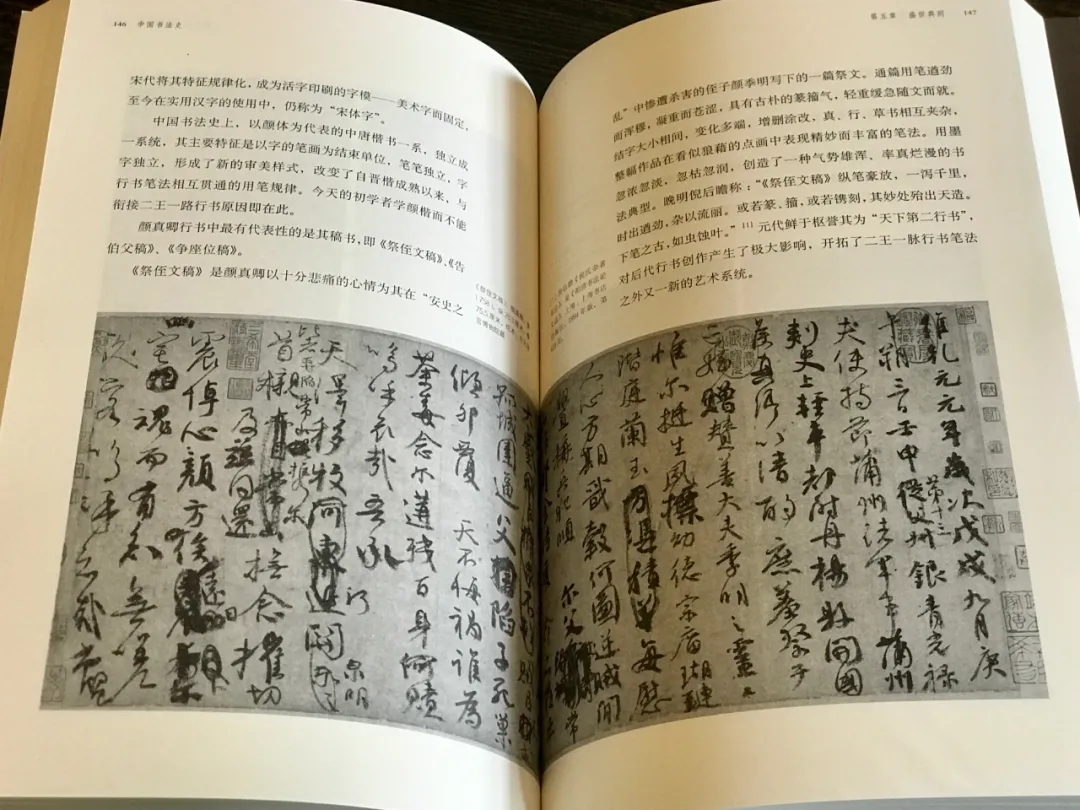 146 中国书法史
宋代将其特征规律化，成为活字印刷的字模——美术字而固定，
至今在实用汉字的使用中，仍称为“宋体字”。
中国书法史上，以颜体为代表的中唐楷书一系，独立成
一系统，其主要特征是以字的笔画为结束单位，笔笔独立，字
字独立，形成了新的审美样式，改变了自晋楷成熟以来，与
行书笔法相互贯通的用笔规律。今天的初学者学颜楷而不能
衔接二王一路行书原因即在此。
颜真卿行书中最有代表性的是其稿书，即《祭侄文稿》、《告
伯父稿》、《争座位稿》。
《祭侄文稿》是颜真卿以十分悲痛的心情为其在“安史之
第五章 盛世典则 147
乱”中惨遭杀害的侄子颜季明写下的一篇祭文。通篇用笔遒劲
而浑穆，凝重而苍涩，具有古朴的篆籀气，轻重缓急随文而就。
结字大小相间，变化多端，增删涂改，真、行、草书相互夹杂，
整幅作品在看似狼藉的点画中表现精妙而丰富的笔法。用墨
忽浓忽淡，忽枯忽润，创造了一种气势雄浑、率真烂漫的书
法典型。晚明倪后瞻称：“《祭侄文稿》纵笔豪放，一泻千里，
时出遒劲，杂以流丽。或若篆、籀，或若镌刻，其妙处殆出天造。
下笔之古，如虫蚀叶。”[1]元代鲜于枢誉其为“天下第二行书”，
对后代行书创作产生了极大影响，开拓了二王一脉行书笔法
之外又一新的艺术系统。
维乾元元年岁次戊戌九月庚
午朔三日壬申第十三从父银青光禄
夫使持节蒲州诸军事蒲州
刺史上轻车都尉丹杨县开国
侯真卿以清酌庶羞祭于
亡侄赠赞善大夫季明之灵
惟尔挺生夙标幼德宗庙瑚琏
阶庭兰玉每慰
人心方期戬谷何图逆贼间
孤城围逼父陷子死巢
倾卵覆天不悔祸谁为
荼毒念尔遘残百身何赎
呜乎哀哉吾承
天泽移牧河关泉明
首榇及兹同还抚念摧切
震悼心颜方俟
魂而有知无嗟